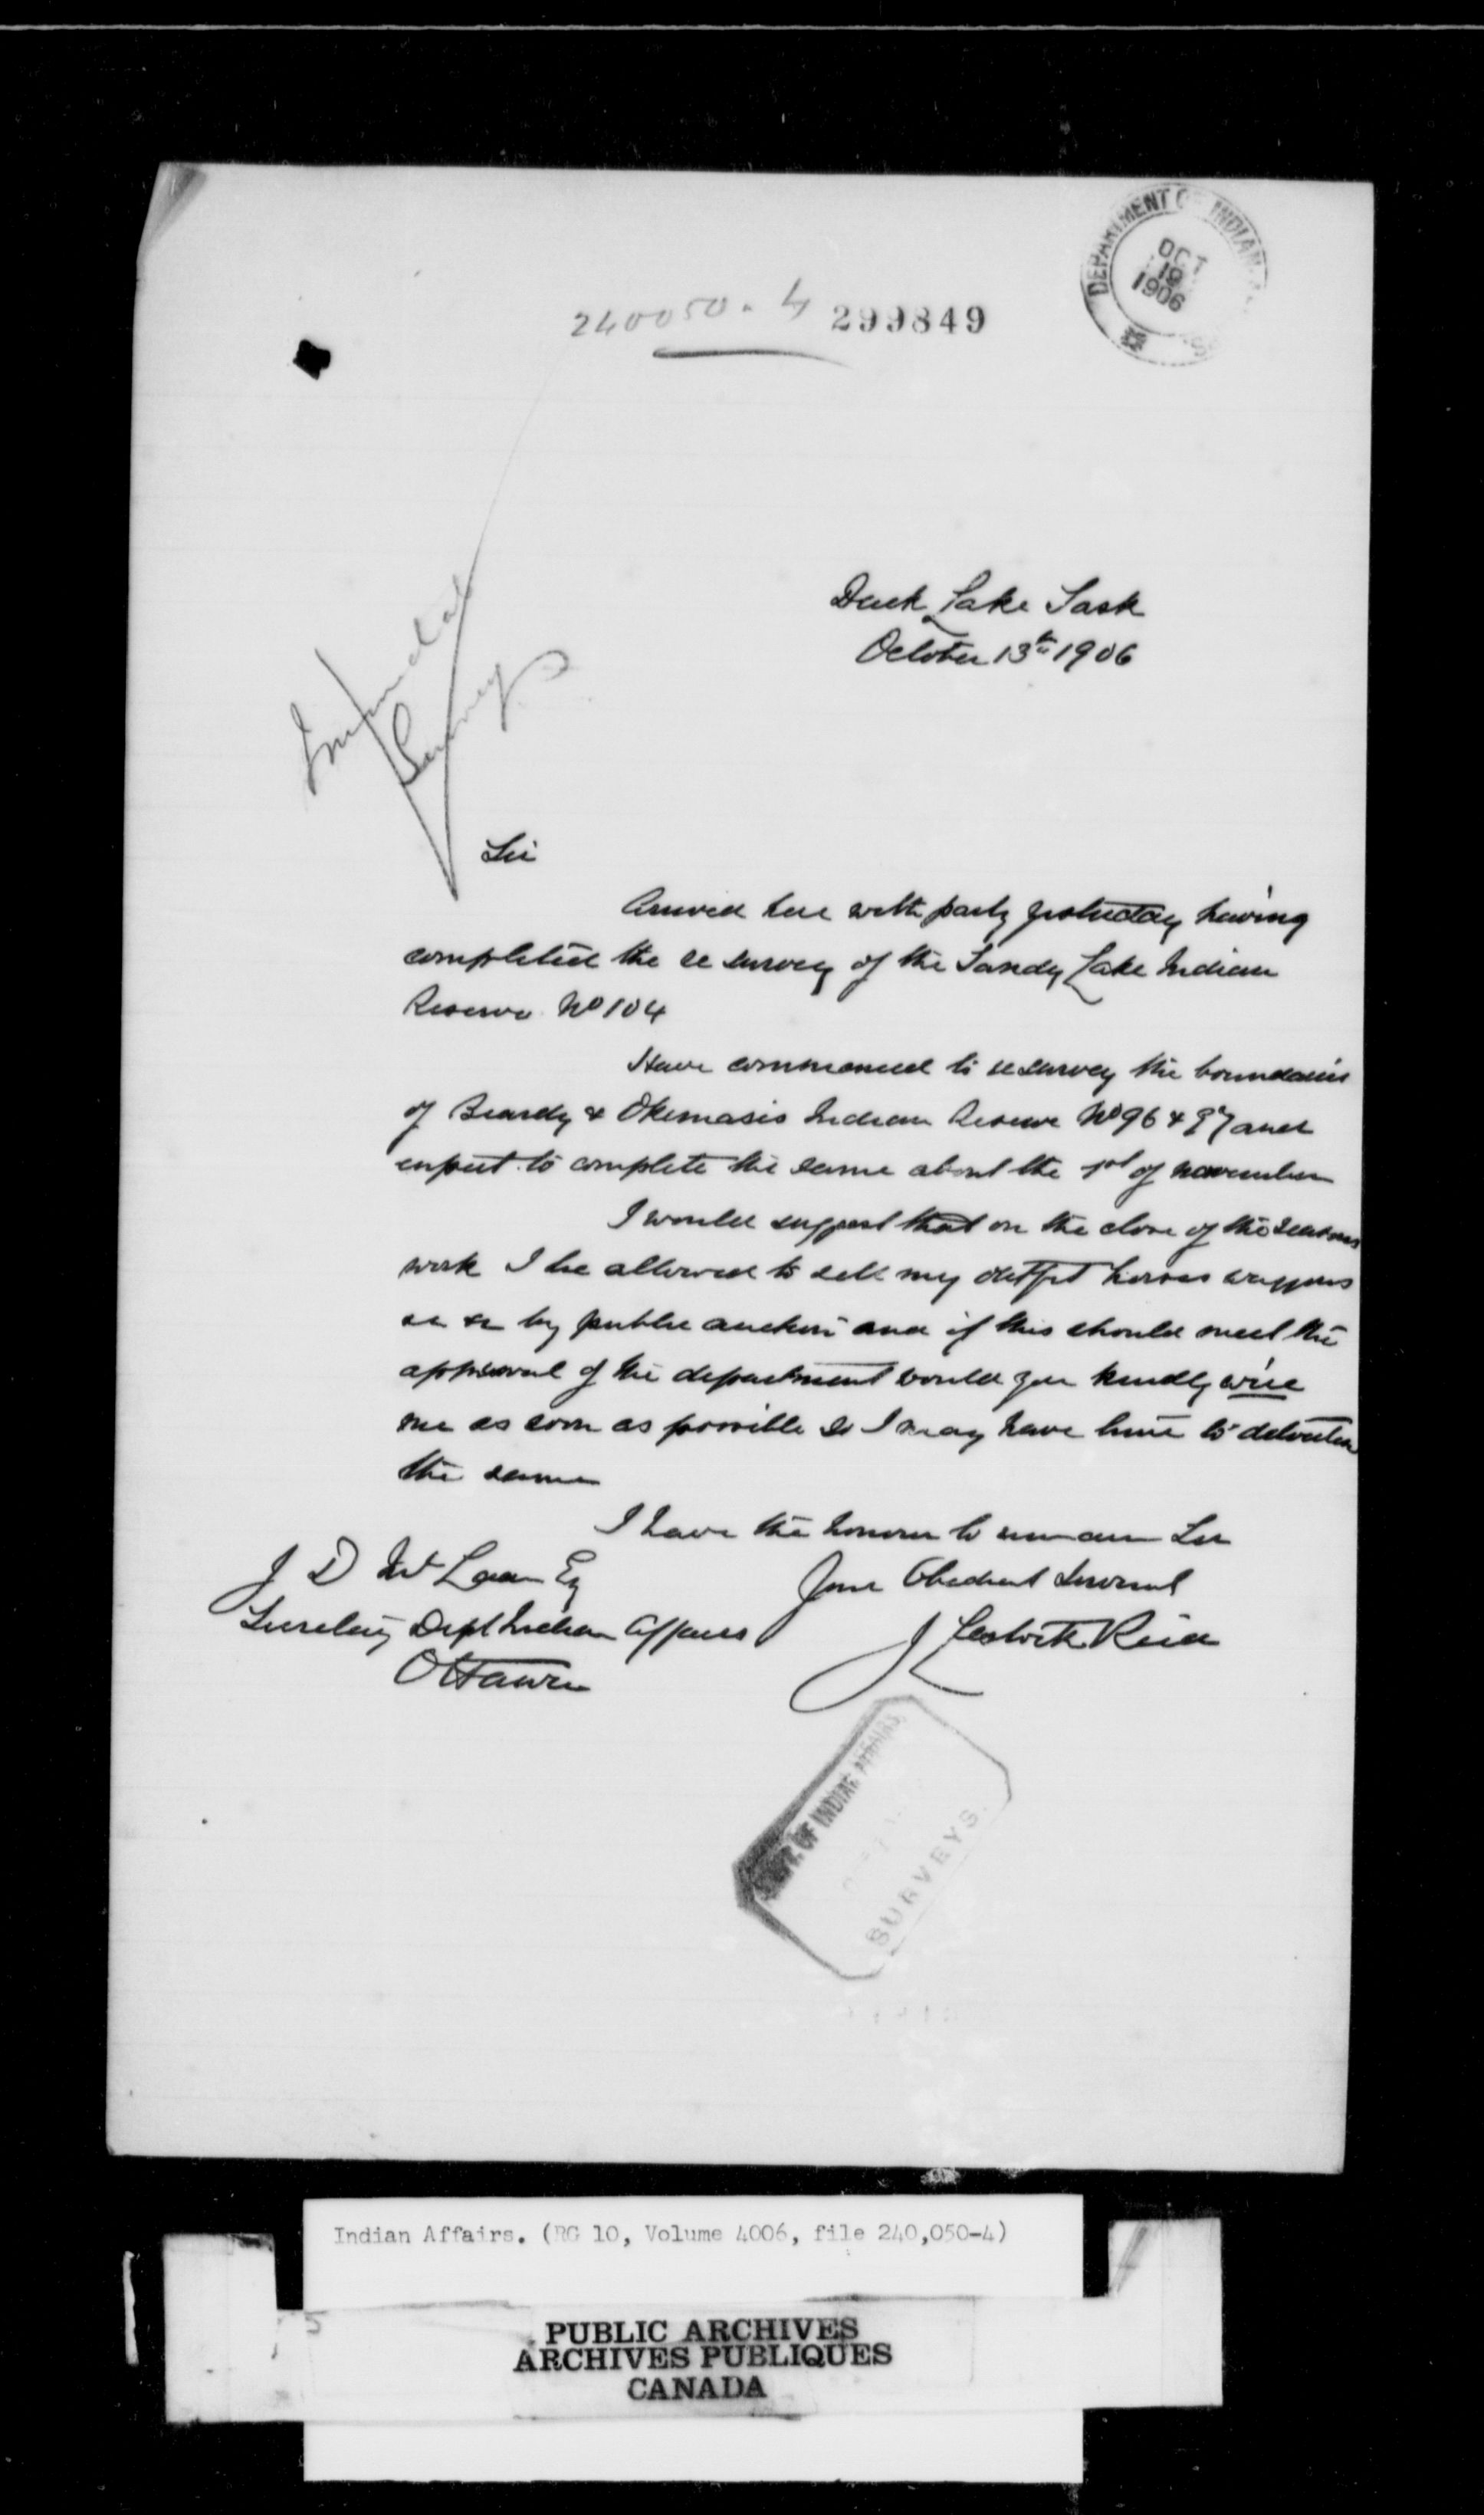 DEPARTMENT OF INDIAN
OCT
19
1906
240050-4 299849
Duck Lake Sask
October 13th 1906
Immediate
Surveys
Sir
Arrived here with party yesterday having
completed the re survey of the Sandy Lake Indian
Reserve No 104
Have commenced to resurvey the boundaries
of Beardy & Okemasis Indian Reserve No 96 & 97 and
expect to complete the same about the 1st of november
I would suggest that on the close of the seasons
work I be allowed to sell my outfit horses waggons
by public auction and if this should meet the
approval of the department would you kindly wire
me as soon as possible so I may have time to advertise
the same
I have the honour to remain Sir
Your Obedient Servant
J Lestock Reid
J D McLean Esq
Secretary Dept Indian Affairs
Ottawa
DEPT. OF INDIAN AFFAIRS
SURVEYS.
Indian Affairs. (RG 10, Volume 4006, file 240,050-4)
PUBLIC ARCHIVES
ARCHIVES PUBLIQUES
CANADA